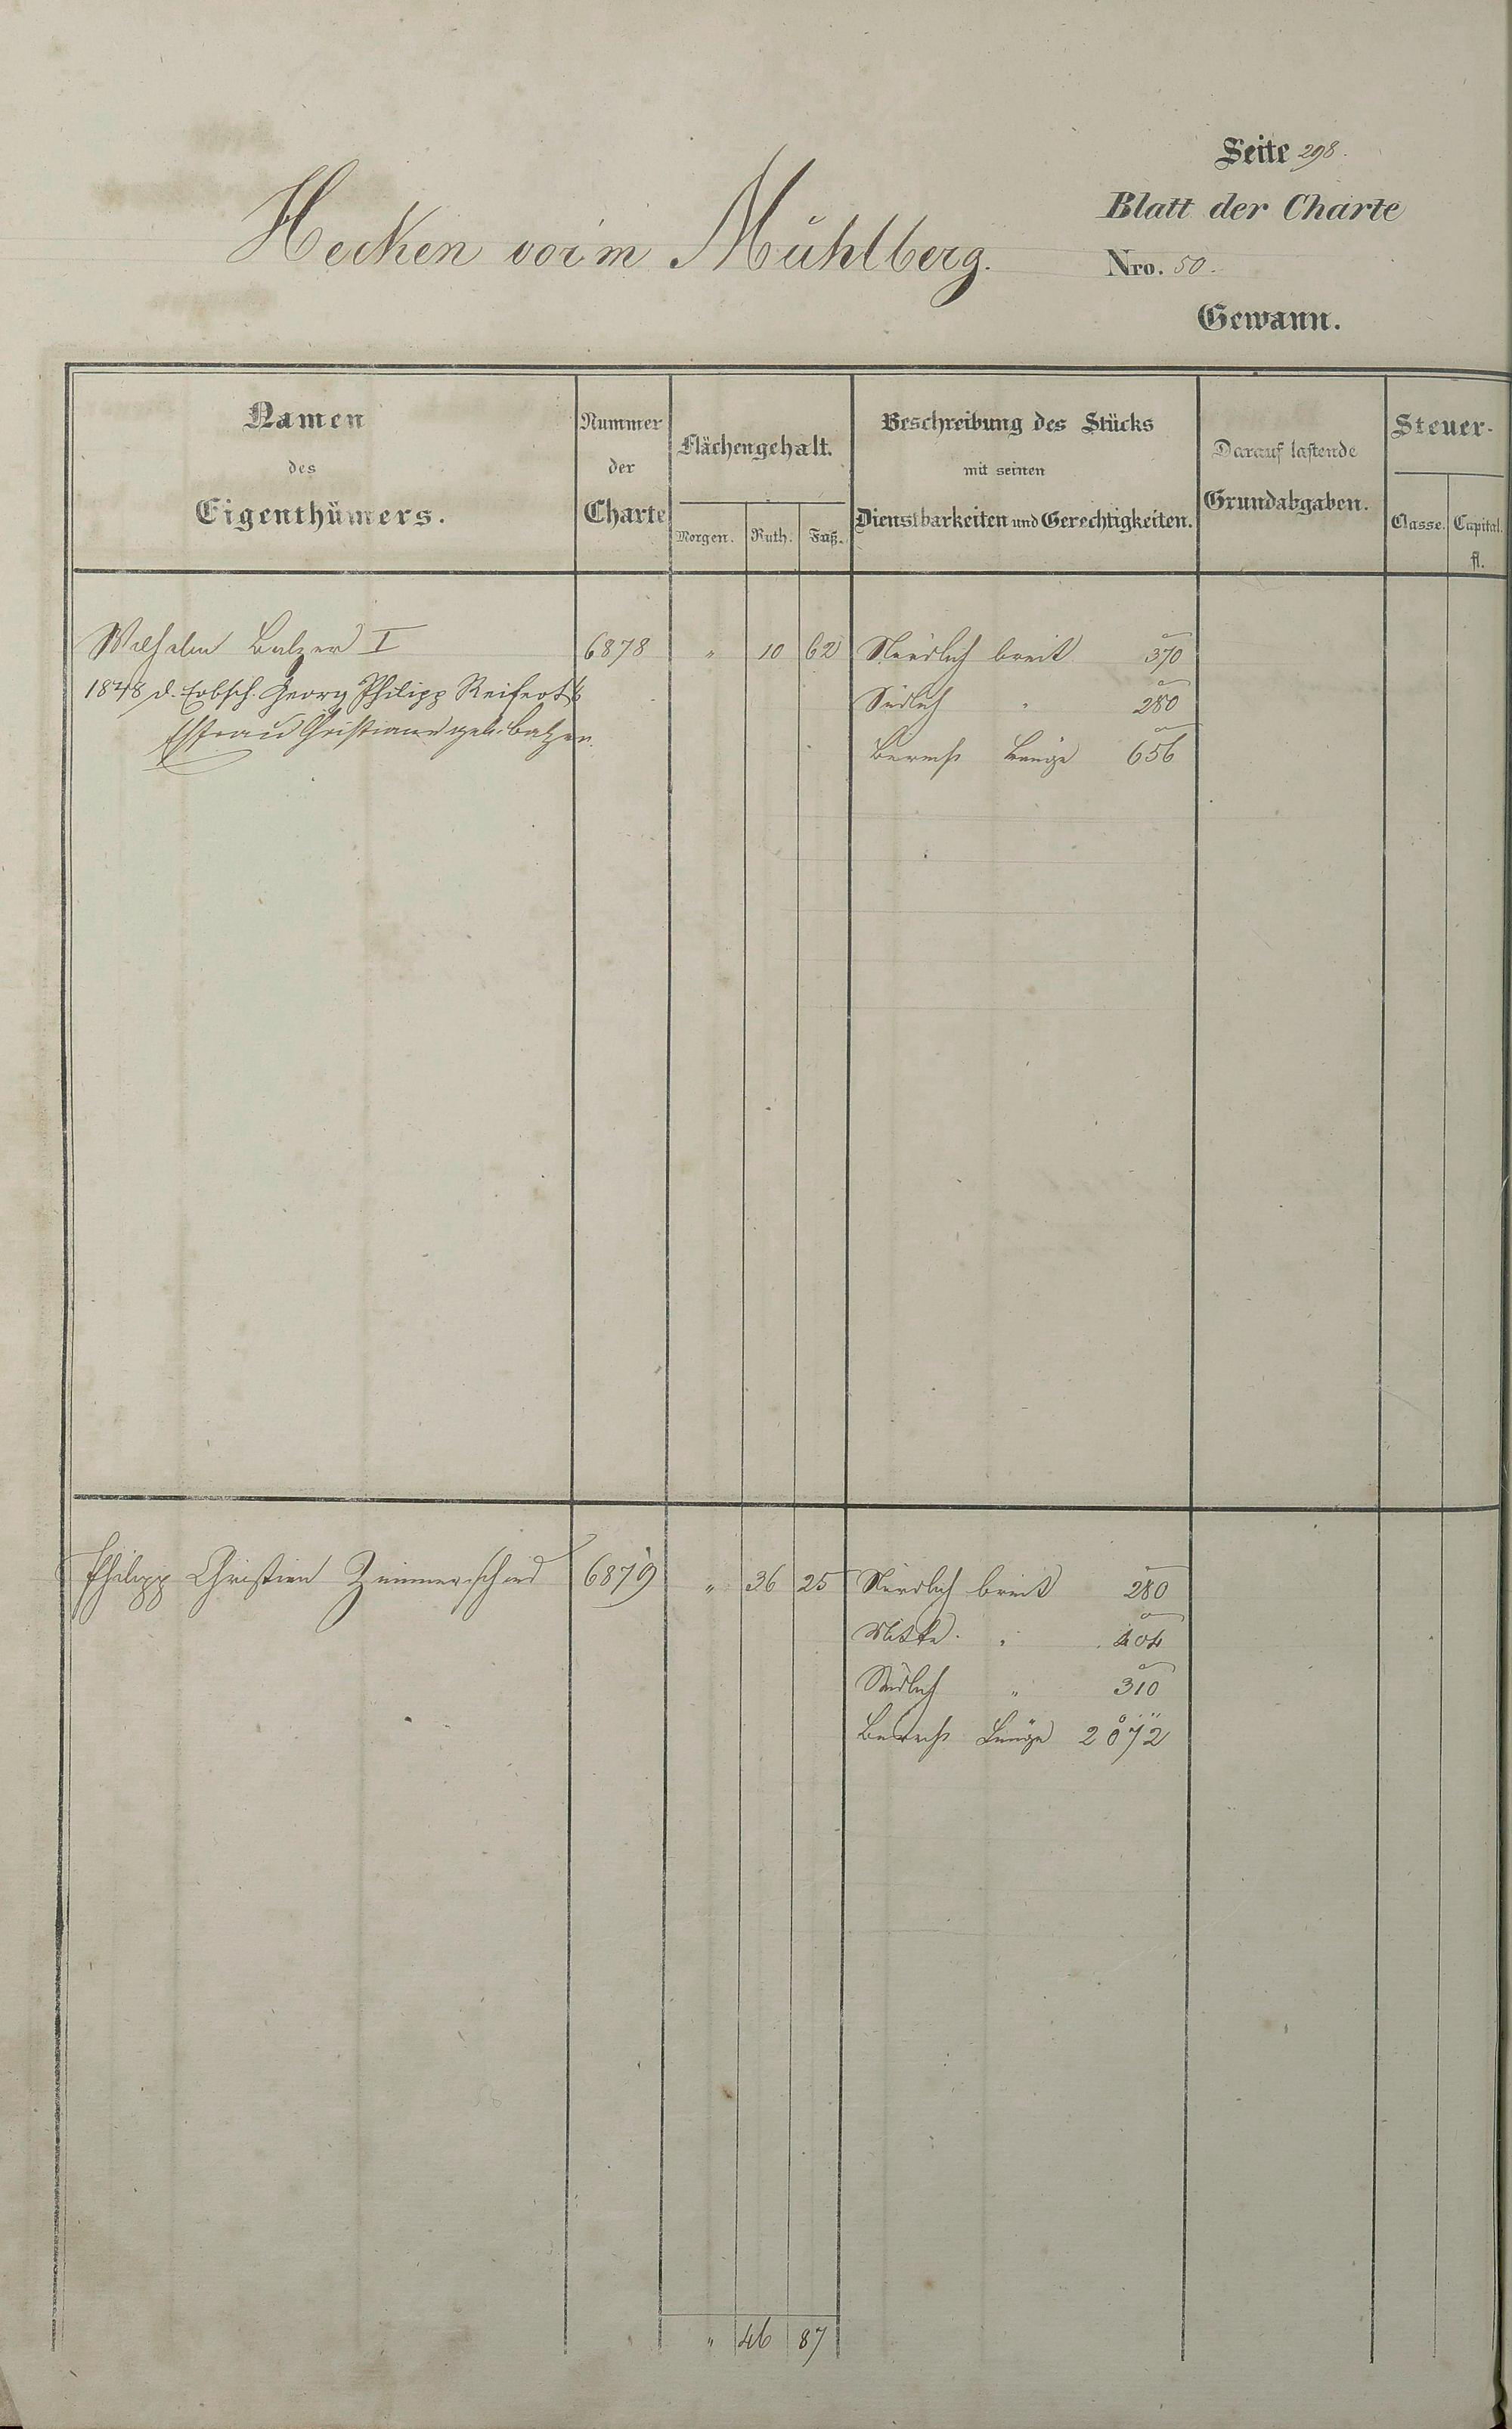 Seite 298.
Blatt der Charte
Hecken vorm Mühlberg.
Nro. 50.
Gewann.
Namen
des
Eigenthümers.
Nummer
der
Charte
Flächengehalt.
Morgen. Ruth. Fuß.
Beschreibung des Stücks
mit seinen
Dienstbarkeiten und Gerechtigkeiten.
Darauf lastende
Grundabgaben.
Steuer-
Classe. Capital.
fl.
Wilhelm Balzer I 6878 " 10 62 Nördlich breit 370
1848 d. Erbsch. Georg Philipp Reifert Südlich " 280
Ehfrau Christiane geb. Balzer. Berech Länge 656
Philipp Christian Zimmerschied 6879 " 36 25 Nördlich breit 280
Mitte " 404
Südlich " 310
Berech Länge 2072
" 46 87